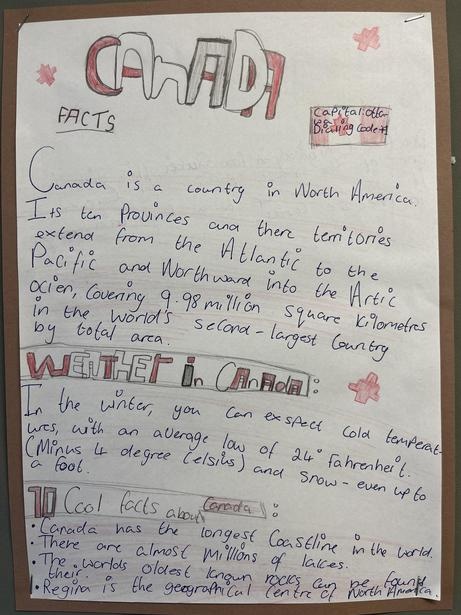 CANADA
FACTS
Capital: Otta-
wa
Dialing Code +1
Canada is a country in North America.
Its ten Provinces and there territories
extend from the Atlantic to the
Pacific and Northward into the Artic
Ocien, Covering 9.98 million square kilometres
in the world's second-largest Country
by total area.
WEATHER in CANADA:
In the winter, you can exspect cold temperat-
ures, with an average low of 24° Fahrenheit.
(Minus 4 degree Celsius) and snow - even up to
a foot.
10 Cool facts about Canada:
• Canada has the longest Coastline in the world.
• There are almost millions of lakes.
• The worlds oldest known rocks can be found
their.
• Regina is the geografhical Centre of North America.